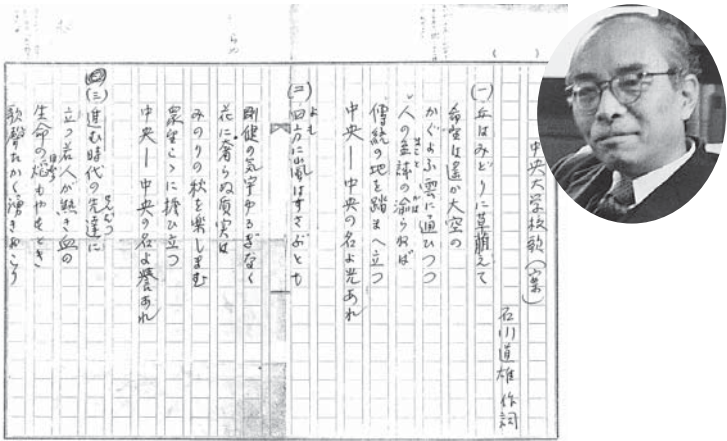 中央大学校歌（案）
石川道雄 作詞
(一) 丘はみどりに草萠えて
希望は遙か大空の
かゞよふ雲に通ひつつ
人の至誠の渝らねば
まこと
かは
傳統の地を踏まへ立つ
中央ー中央の名よ光あれ
(二) 四方に嵐はすさぶとも
よも
剛健の気宇ゆるぎなく
花に奢らぬ質実は
みのりの秋を楽しまむ
衆生こゝに擔ひ立つ
中央ー中央の名よ譽あれ
(三) 進む時代の先達に
せんだつ
立つ若人が熱き血の
生命の焰もやすとき
歌聲たかく湧きおこう